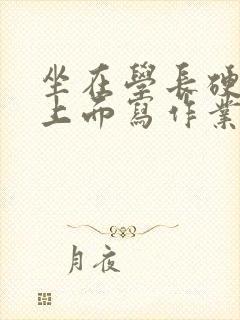 坐在學長硬
上而寫作業
月夜